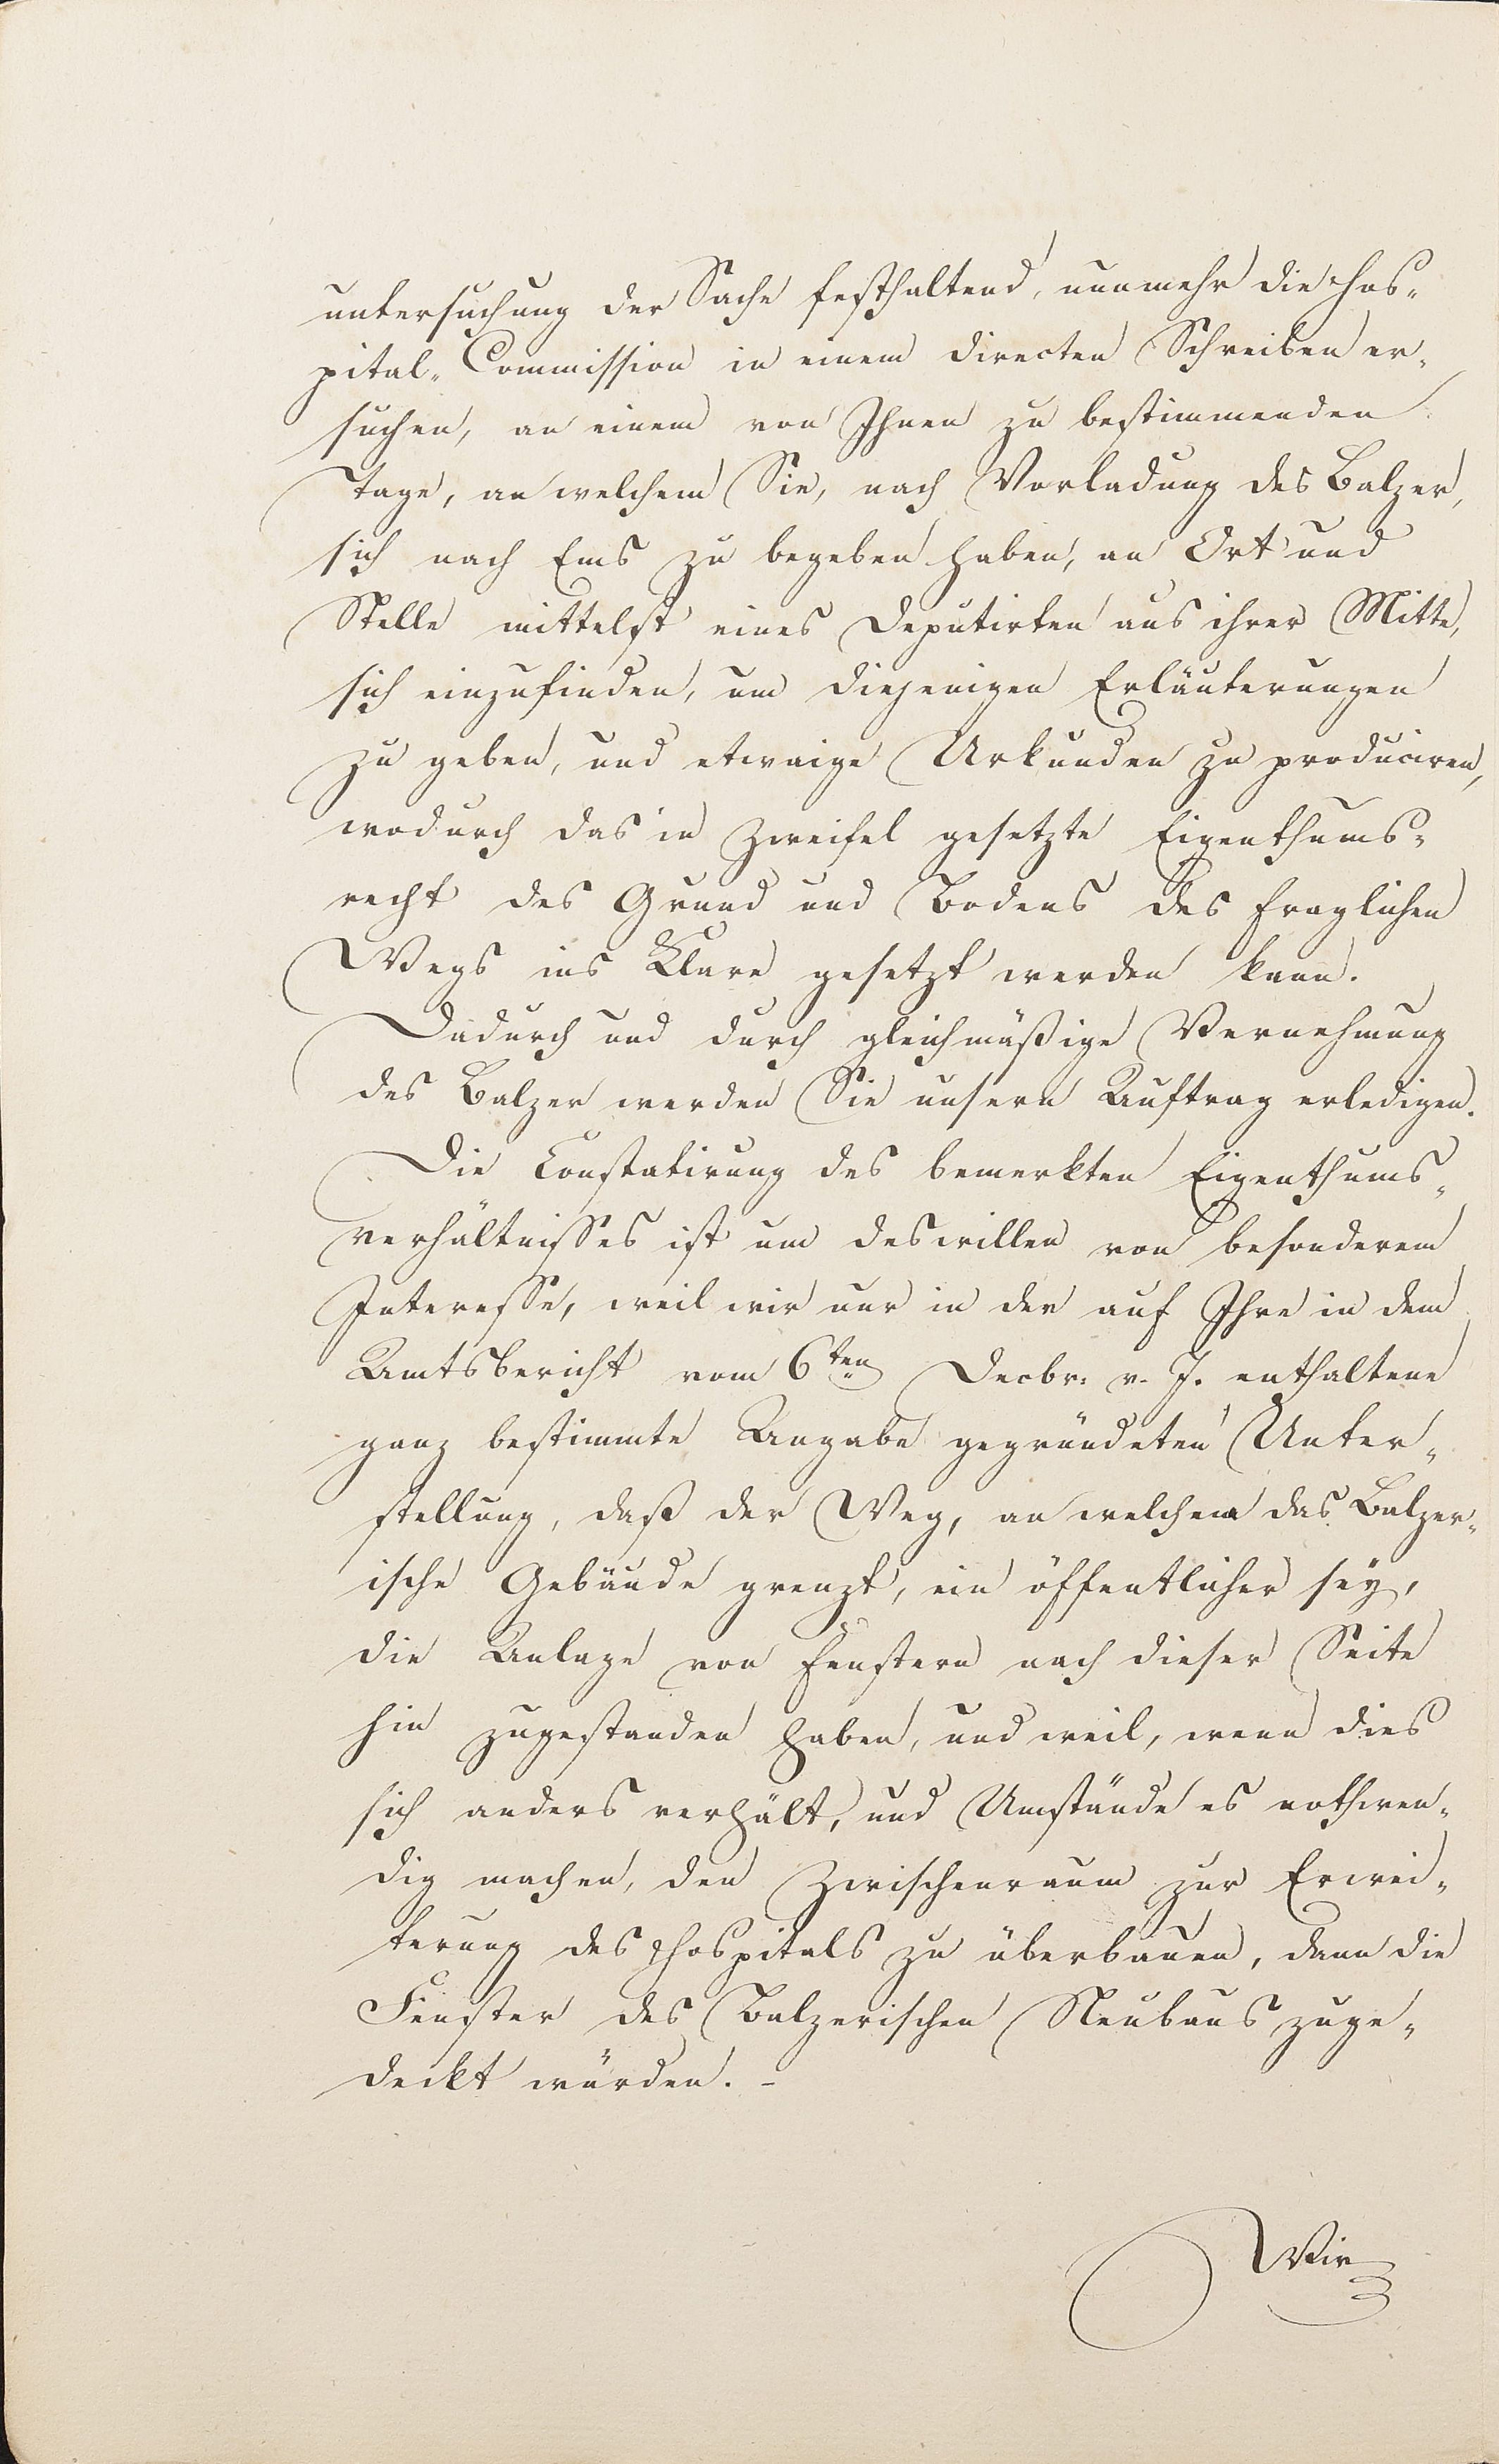 untersuchung der Sache festhaltend, nunmehr die Hos-
pital-Commission in einem directen Schreiben er-
suchen, an einem von Ihnen zu bestimmenden
Tage, an welchem Sie, nach Vorladung des Balzer,
sich nach Ems zu begeben haben, an Ort und
Stelle mittelst eines Deputirten aus ihrer Mitte,
sich einzufinden, um diejenigen Erläuterungen
zu geben, und etwaige Urkunden zu produciren,
wodurch das in Zweifel gesetzte Eigenthums-
recht des Grund und Bodens des fraglichen
Wegs ins Klare gesetzt werden kann.
Dadurch und durch gleichmäßige Vernehmung
des Balzer werden Sie unsern Auftrag erledigen.
Die Constatirung des bemerkten Eigenthums-
verhältnisses ist um deswillen von besonderem
Interesse, weil wir nur in der auf Ihre in dem
Amtsbericht vom 6ten Decbr. v. J. enthaltene
ganz bestimmte Angabe gegründeten Unter-
stellung, daß der Weg, an welchem das Balzer-
ische Gebäude grenzt, ein öffentlicher sey,
die Anlage von Fenstern nach dieser Seite
hin zugestanden haben, und weil, wenn dies
sich anders verhält, und Umstände es nothwen-
dig machen, den Zwischenraum zur Erwei-
terung des Hospitals zu überbauen, dann die
Fenster des Balzerischen Neubaus zuge-
deckt würden. -
Wir